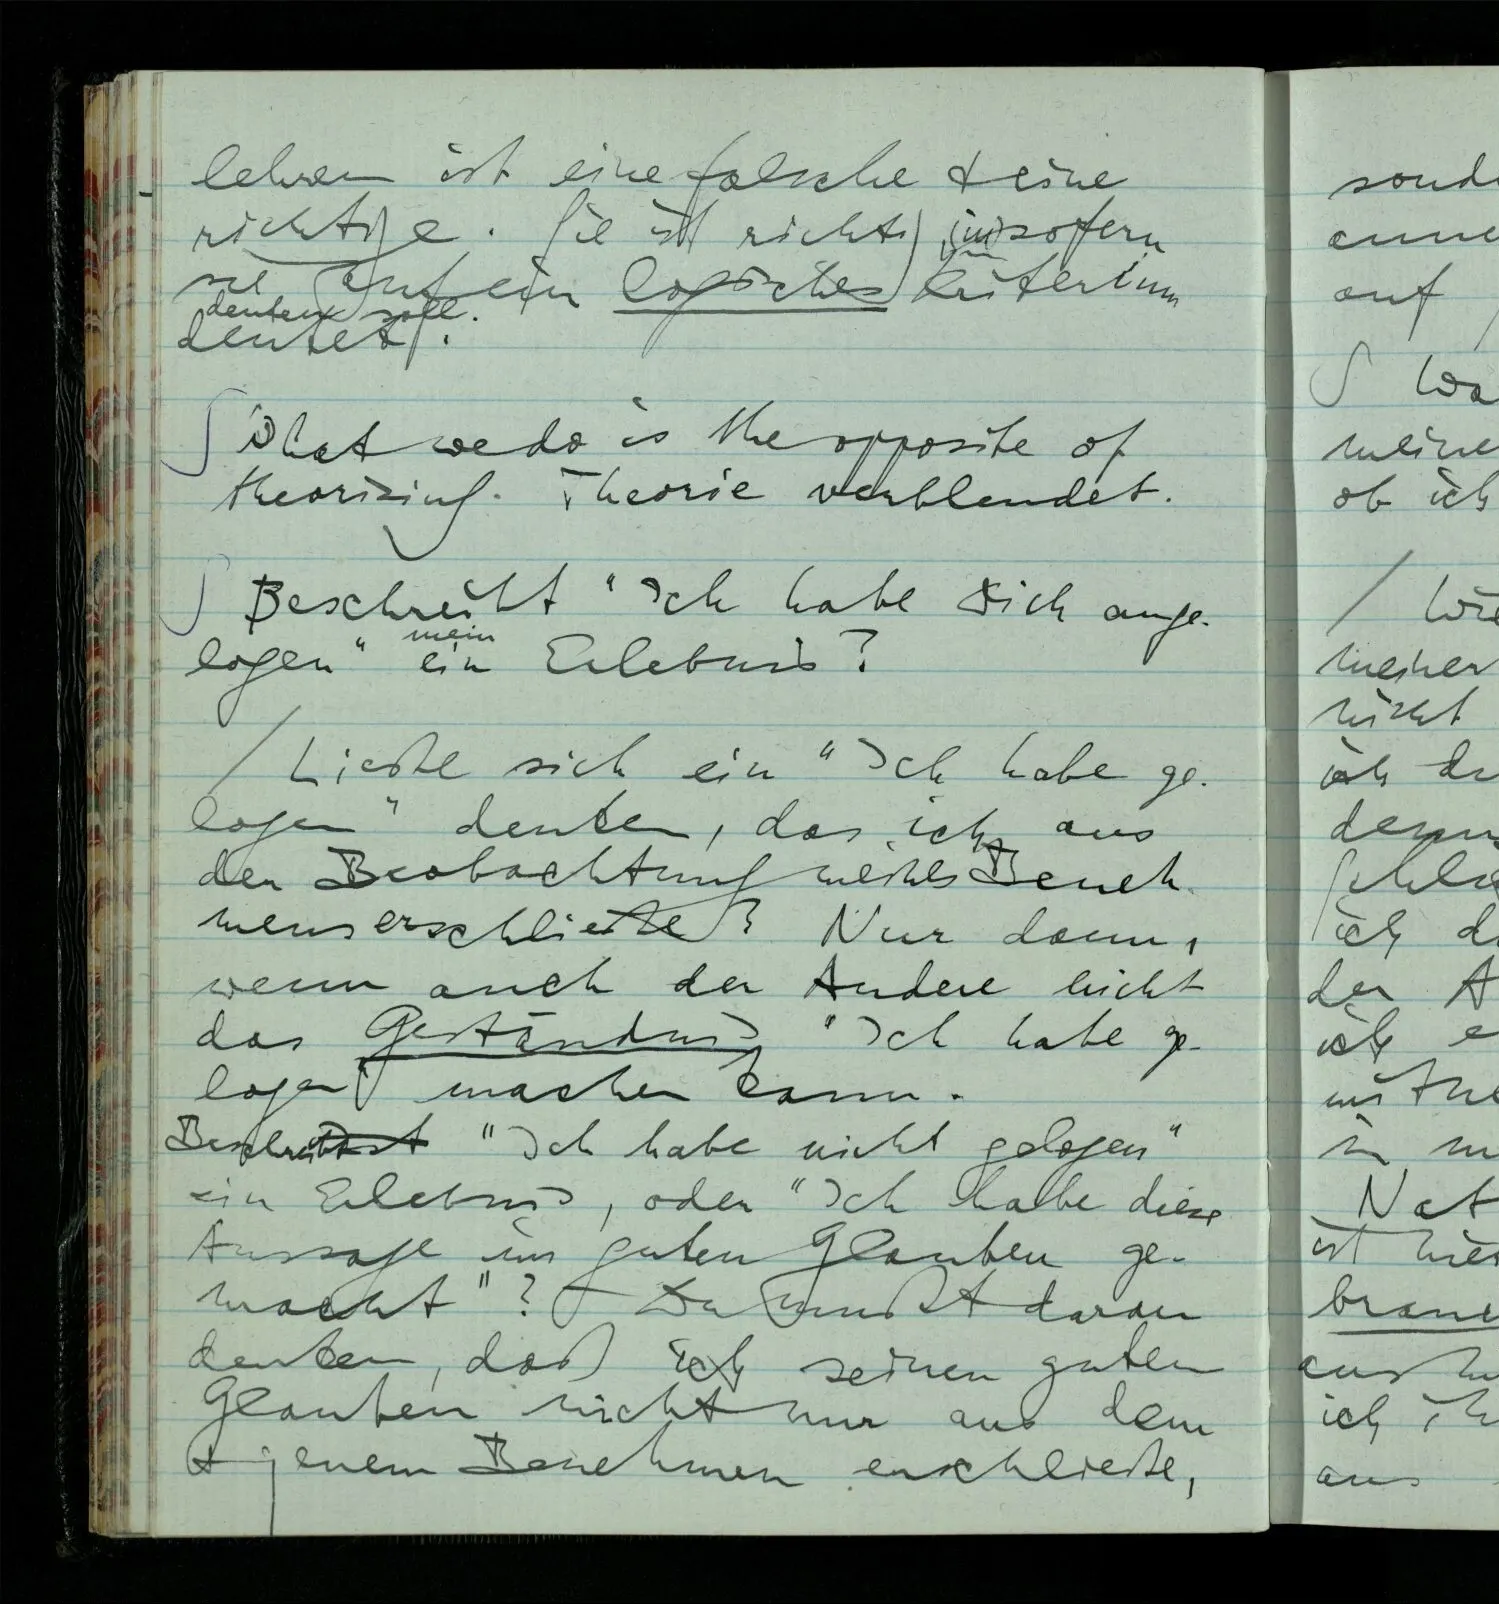 lehren ist eine falsche & eine
richtige. Sie ist richtig, insofern
sie auf ein logisches Kriterium
deuten soll.
deutet.
∫ What we do is the opposite of
theorizing. Theorie verblendet.
∫ Beschreibt "Ich habe Dich ange-
mein
logen" ein Erlebnis?
/ Ließe sich ein "Ich habe ge-
logen" denken, das ich aus
der Beobachtung meines Beneh-
mens erschließe? Nur dann,
wenn auch der Andere nicht
das Geständnis "Ich habe ge-
logen" machen kann.
Beschreibt "Ich habe nicht gelogen"
ein Erlebnis, oder "Ich habe diese
Aussage im guten Glauben ge-
macht"? – Du mußt daran
denken, daß ich seinen guten
Glauben nicht nur aus dem
& jenem Benehmen erschließe,
sond
anne
auf
∫ Wa
meine
ob ich
/ Wie
meiner
nicht
ich
ich d
der A
ich e
in m
Nat
ist hier
brauc
ich ih
aus